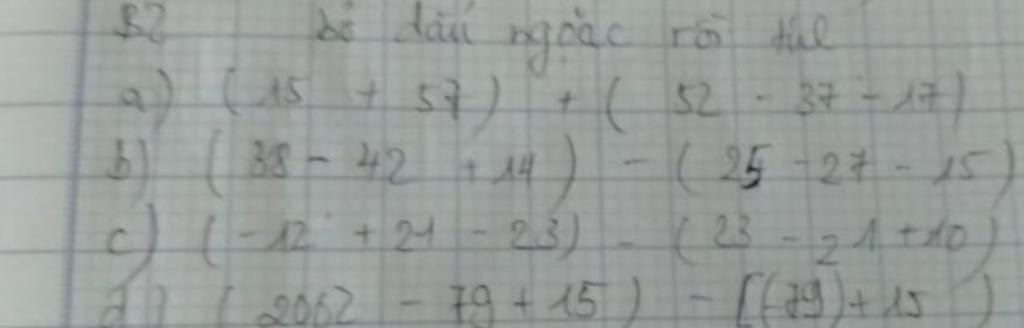 B2 bỏ dấu ngoặc rồi tính
a) (15 + 57) + (52 - 37 - 17)
b) (38 - 42 + 14) - (25 - 27 - 15)
c) (-12 + 21 - 23) - (23 - 21 + 10)
d) (2062 - 79 + 15) - [(-79) + 15)